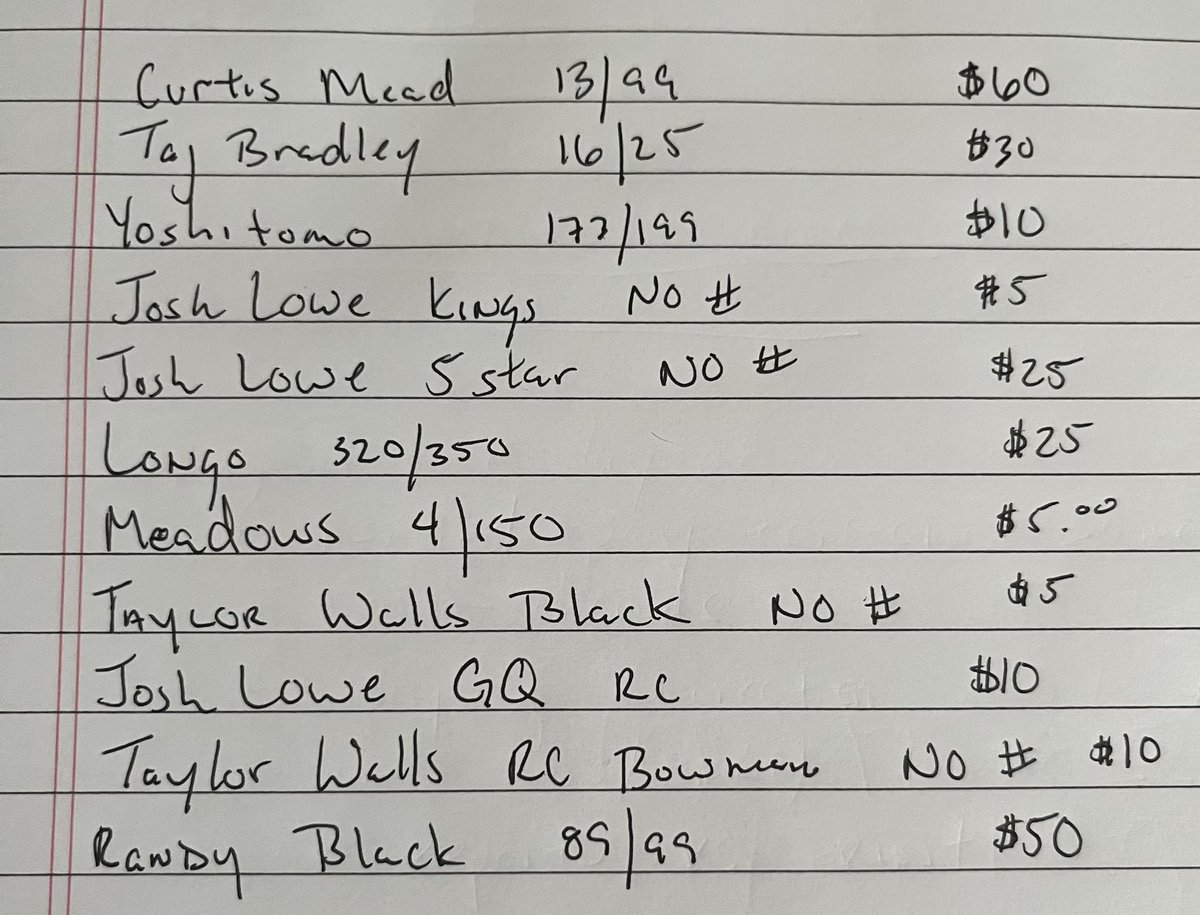 Curtis Mead 13/99 $60
Taj Bradley 16/25 $30
Yoshitomo 177/199 $10
Josh Lowe Kings No # $5
Josh Lowe 5 star No # $25
Longo 320/350 $25
Meadows 4/150 $5.00
Taylor Walls Black No # $5
Josh Lowe GQ RC $10
Taylor Walls RC Bowman No # $10
Randy Black 89/99 $50